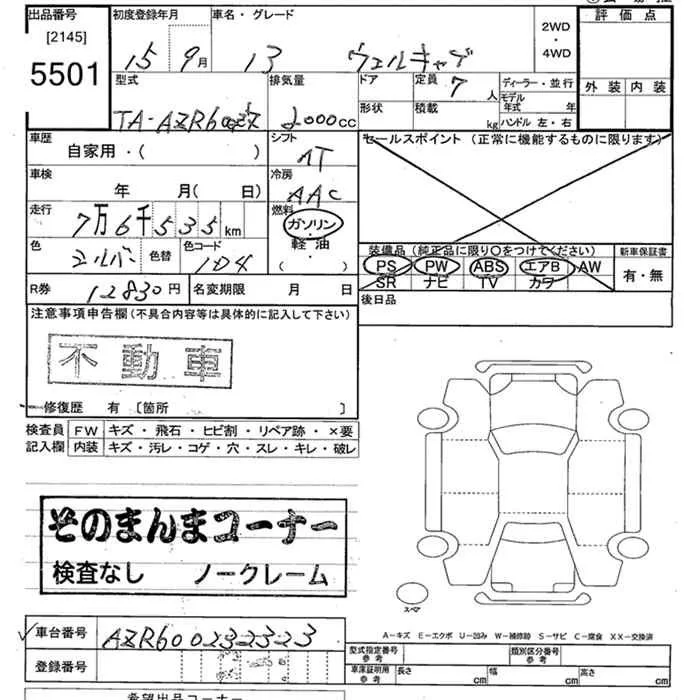 出品番号 初度登録年月 車名・グレード 2WD・4WD 評価点
[2145]
5501
15年9月 13 ウェルキャブ
型式 排気量 ドア 定員 7人 ディーラー・並行 外装 内装
TA-AZR60改 2000cc 形状 積載 kg モデル年式 年 ハンドル 左・右
車歴 シフト セールスポイント (正常に機能するものに限ります)
自家用・( ) AT
車検 冷房
年 月( 日) AAC
走行 燃料
7万6千535km ガソリン・軽油
色 シルバー 色替 色コード 1D4 ( )
装備品 (純正品に限り○をつけてください) 新車保証書
PS PW ABS エアB AW 有・無
SR ナビ TV カワ
R券 12830円 名変期限 月 日
後日品
注意事項申告欄(不具合内容等は具体的に記入して下さい)
不動車
修復歴 有 〔箇所 〕
検査員 FW キズ・飛石・ヒビ割・リペア跡・×要
記入欄 内装 キズ・汚レ・コゲ・穴・スレ・キレ・破レ
そのまんまコーナー
検査なし ノークレーム
スペア
車台番号 AZR60 0232323
A-キズ E-エクボ U-凹み W-補修跡 S-サビ C-腐食 XX-交換済
登録番号
型式指定番号 参考 類別区分番号 参考
車庫証明用 参考 長さ cm 幅 cm 高さ cm
希望出品コーナー